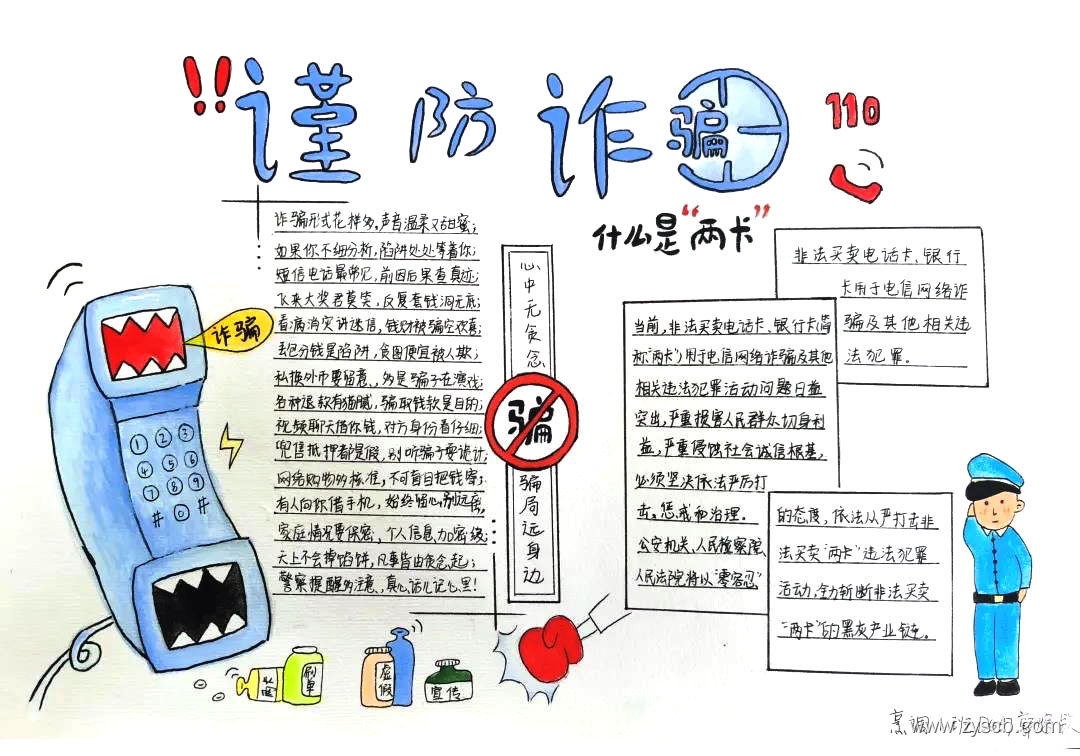 !!谨防诈骗
110
诈骗形式花样多,声音温柔又甜蜜;
如果你不细分析,陷阱处处等着你;
短信电话最常见,前因后果查真迹;
飞来大奖君莫笑,反复套钱洞无底;
看病消灾讲迷信,钱财被骗空欢喜;
丢包分钱是陷阱,贪图便宜被人欺;
私换外币要留意,多是骗子在演戏;
各种退款有猫腻,骗取钱款是目的;
视频聊天借你钱,对方身份看仔细;
兜售抵押都是假,别听骗子耍诡计;
网络购物多核准,不可盲目把钱寄;
有人向你借手机,始终留心别远离;
家庭情况要保密,个人信息加密级;
天上不会掉馅饼,凡事皆由贪念起;
警察提醒多注意,真心话儿记心里!
诈骗
1 2 3
4 5 6
7 8 9
# 0 #
心中无贪念
骗
骗局远身边
什么是“两卡”
非法买卖电话卡、银行
卡用于电信网络诈
骗及其他相关违
法犯罪。
当前,非法买卖电话卡、银行卡(简
称“两卡”)用于电信网络诈骗及其他
相关违法犯罪活动问题日益
突出,严重损害人民群众切身利
益,严重侵蚀社会诚信根基,
必须坚决依法严厉打
击、惩戒和治理.
公安机关、人民检察院、
人民法院将以“零容忍”
的态度,依法从严打击非
法买卖“两卡”违法犯罪
活动,全力斩断非法买卖
“两卡”的黑灰产业链。
刷单
虚假
宣传
烹调
www.lzysch.com